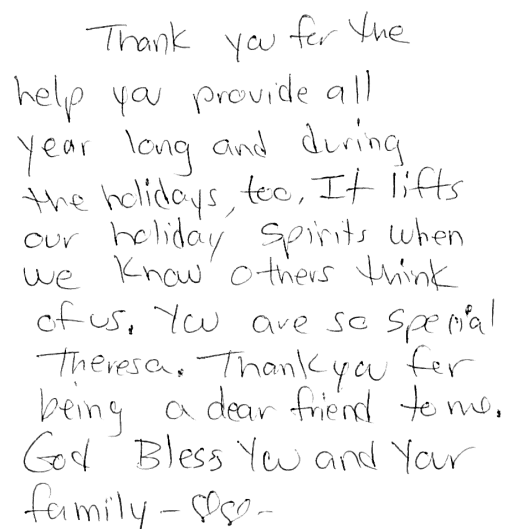 Thank you for the
help you provide all
year long and during
the holidays, too. It lifts
our holiday spirits when
we know others think
of us. You are so special
Theresa. Thank you for
being a dear friend to me.
God Bless You and Your
family - ♡♡ -